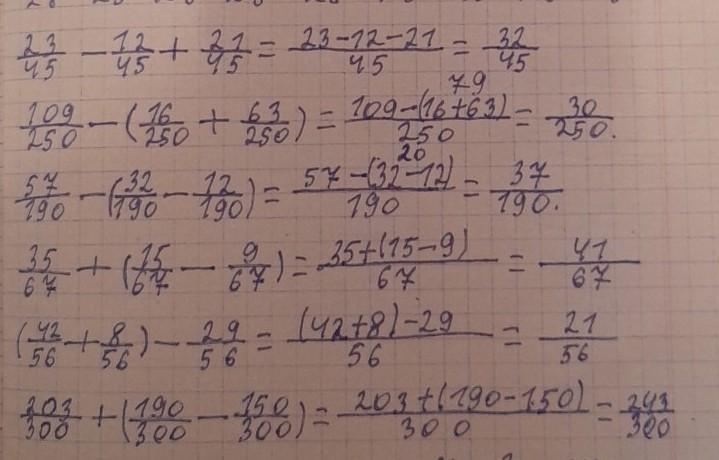 23/45 − 12/45 + 21/45 = (23−12−21)/45 = 32/45
109/250 − (16/250 + 63/250) = (109−(16+63))/250 = 30/250.
79
57/190 − (32/190 − 12/190) = (57−(32−12))/190 = 37/190.
20
35/67 + (15/67 − 9/67) = (35+(15−9))/67 = 41/67
(42/56 + 8/56) − 29/56 = ((42+8)−29)/56 = 21/56
203/300 + (190/300 − 150/300) = (203+(190−150))/300 = 243/300